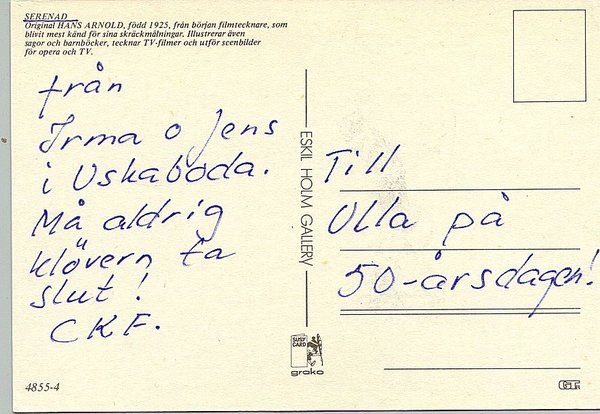 SERENAD
Original HANS ARNOLD, född 1925, från början filmtecknare, som
blivit mest känd för sina skräckmålningar. Illustrerar även
sagor och barnböcker, tecknar TV-filmer och utför scenbilder
för opera och TV.
från
Irma o Jens
i Uskaboda.
Må aldrig
klövern ta
slut!
CKF.
ESKIL HOLM GALLERY
Till
Ulla på
50-årsdagen!
SUSY
CARD
groko
4855-4